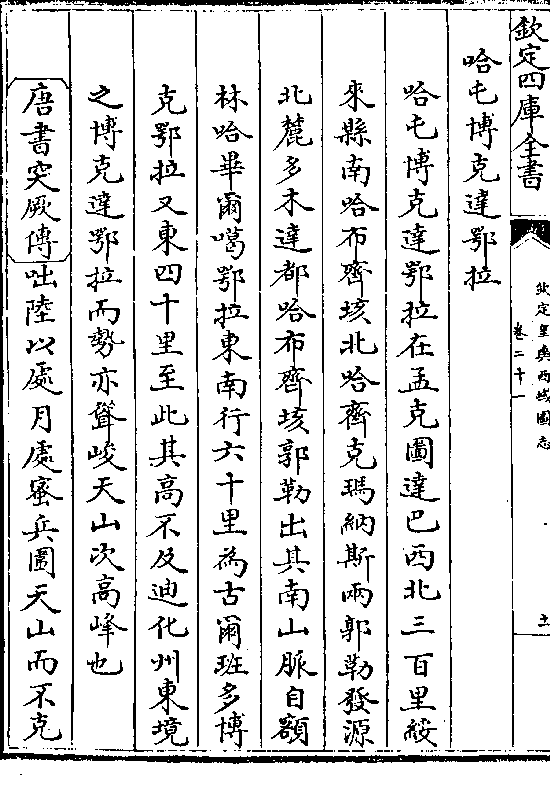 欽定四庫全書
欽定皇輿西域圖志
卷二十一
十
哈屯博克達鄂拉
哈屯博克達鄂拉在孟克圖達巴西北三百里綏
來縣南哈布齊垓北哈齊克瑪納斯兩郭勒發源
北麓多木達都哈布齊垓郭勒出其南山脈自額
林哈畢爾噶鄂拉東南行六十里為古爾班多博
克鄂拉又東四十里至此其高不及迪化州東境
之博克達鄂拉而勢亦聳峻天山次高峰也
唐書突厥傳咄陸以處月處蜜兵圍天山而不克